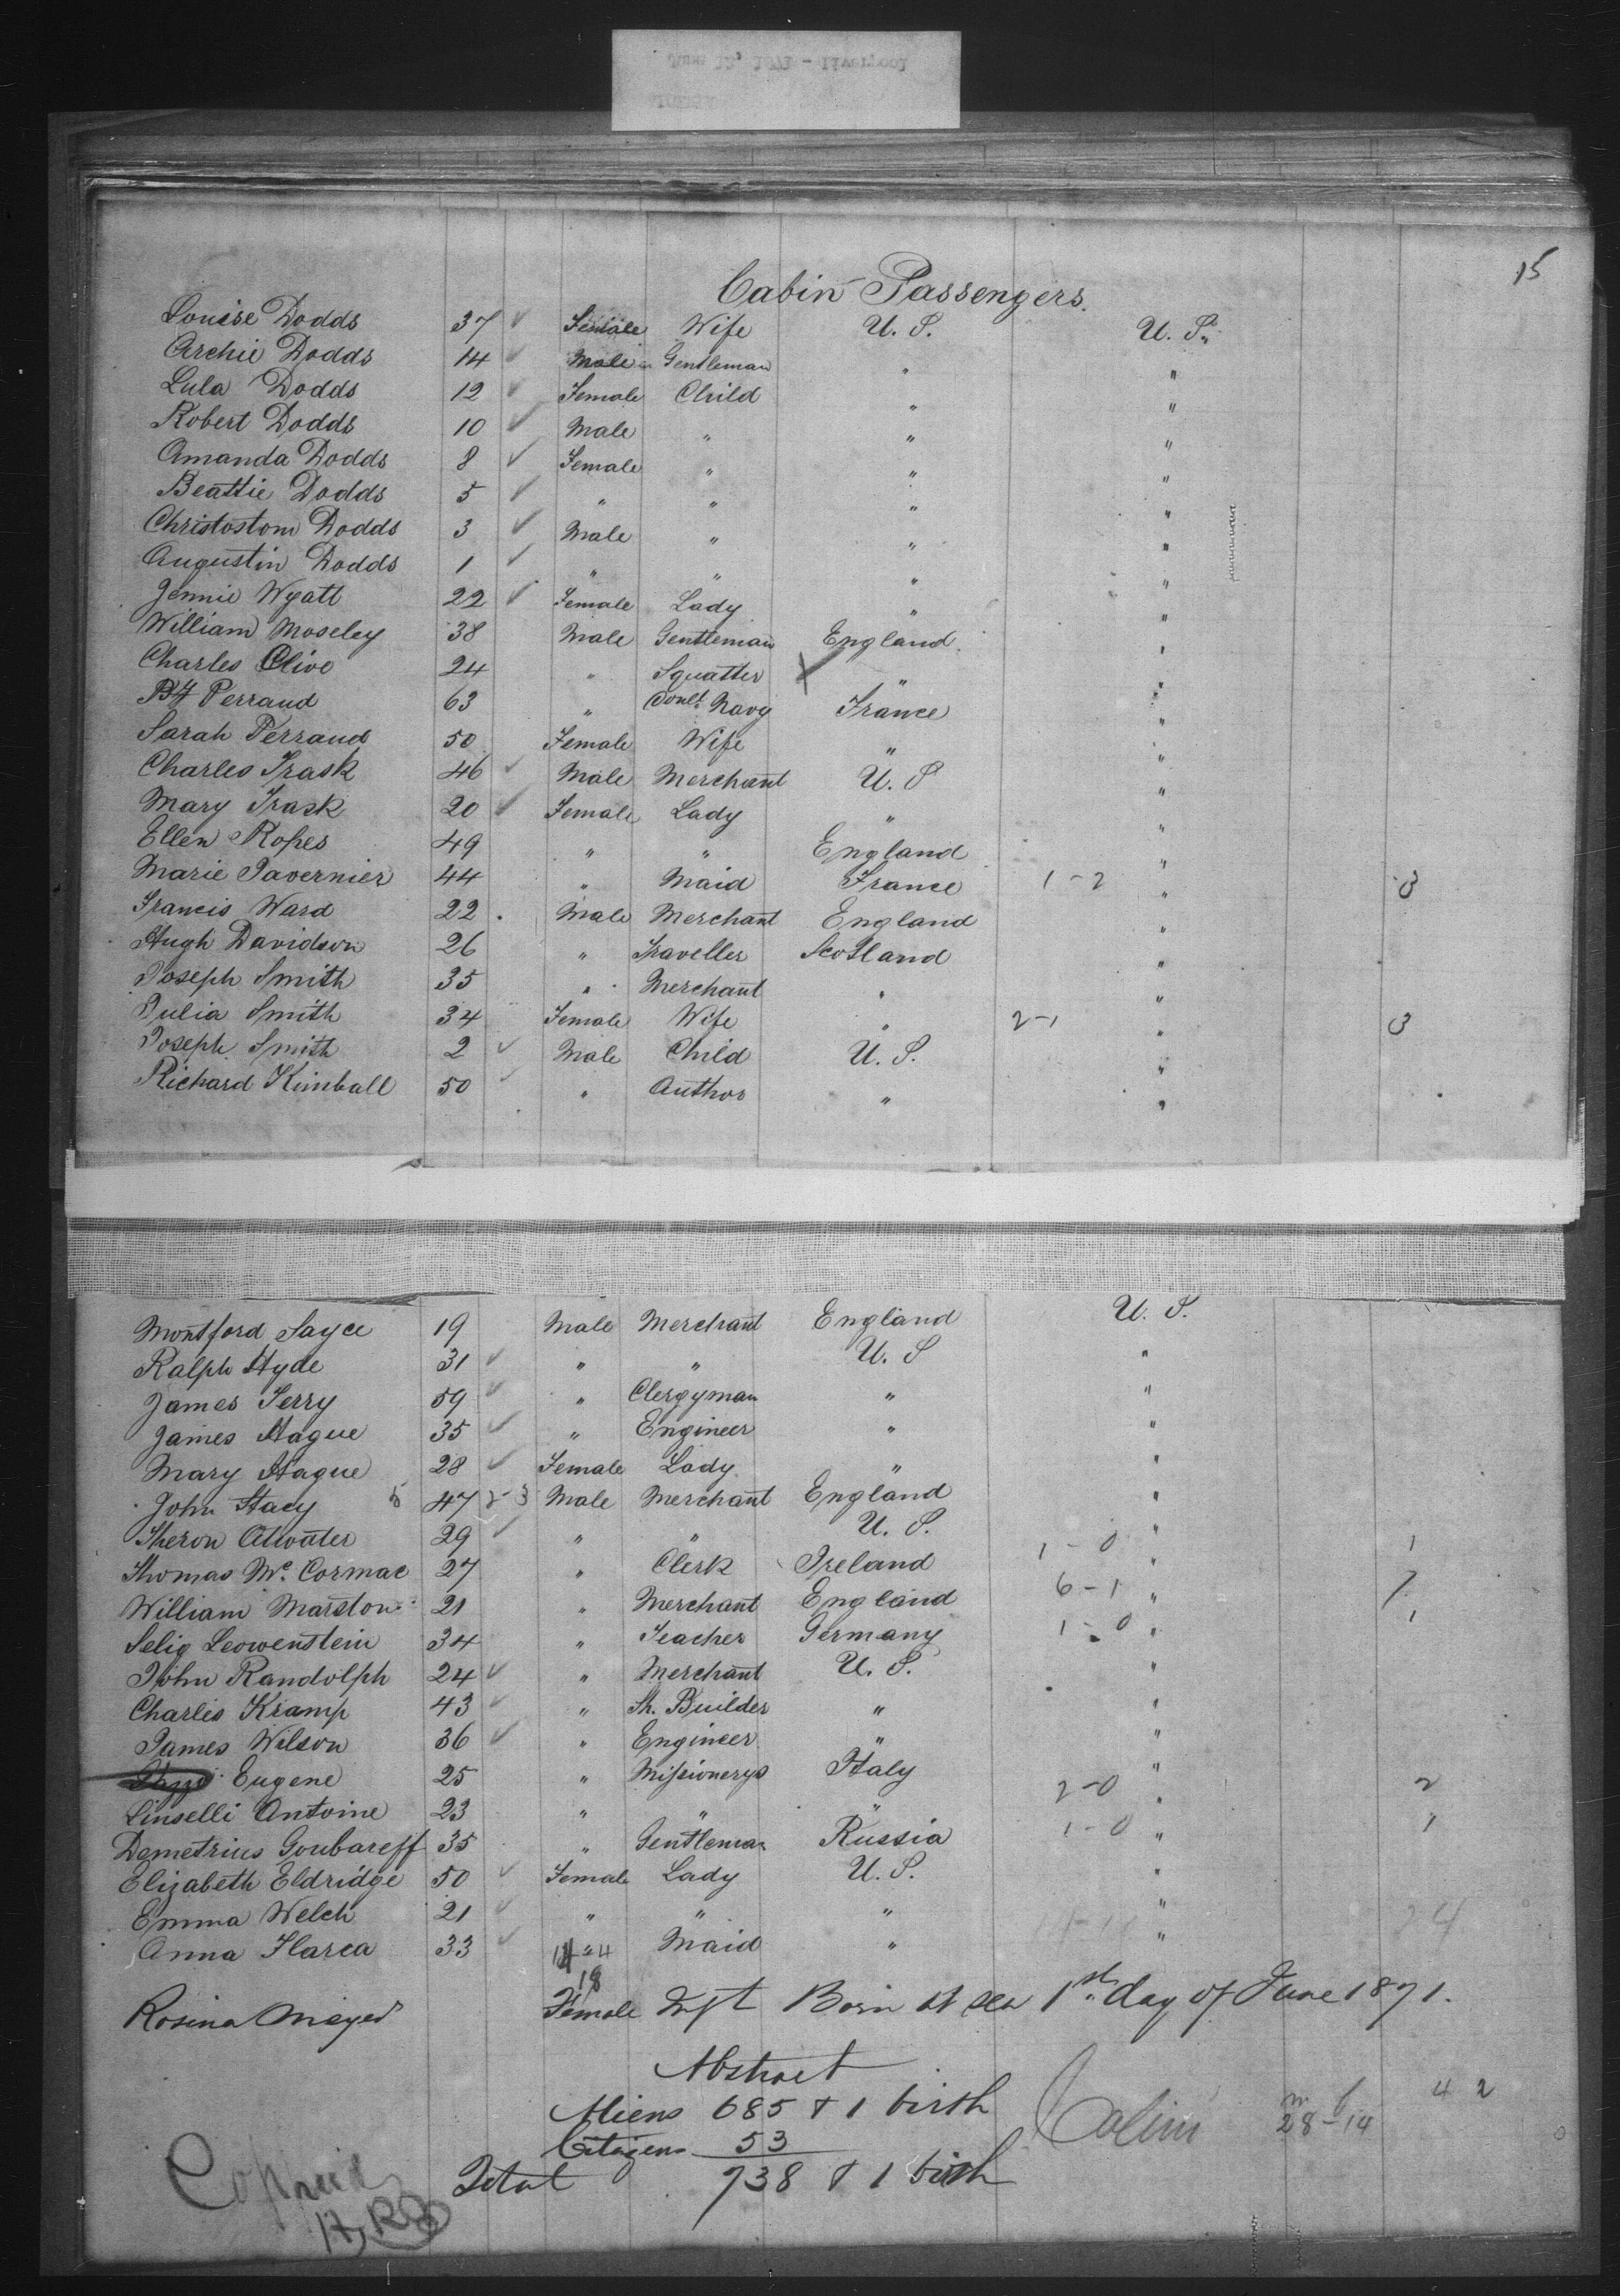 June 12, 1871 - Liverpool
15
Cabin Passengers.
Louise Dodds 37 ✓ Female Wife U. S. U. S.
Archie Dodds 14 ✓ Male Gentleman " "
Lula Dodds 12 ✓ Female Child " "
Robert Dodds 10 ✓ Male " " "
Amanda Dodds 8 ✓ Female " " "
Beattie Dodds 5 ✓ " " " "
Christostom Dodds 3 ✓ Male " " "
Augustin Dodds 1 ✓ " " " "
Jennie Wyatt 22 ✓ Female Lady " "
William Moseley 38 Male Gentleman England "
Charles Clive 24 " Squatter " "
Perraud 63 " Navy France "
Sarah Perraud 50 Female Wife " "
Charles Trask 46 ✓ Male Merchant U. S "
Mary Trask 20 ✓ Female Lady " "
Ellen Ropes 49 " " England "
Marie Tavernier 44 " Maid France 1-2 " 3
Francis Ward 22 Male Merchant England "
Hugh Davidson 26 " Traveller Scotland "
Joseph Smith 35 " Merchant " "
Julia Smith 34 Female Wife " 2-1 " 3
Joseph Smith 2 ✓ Male Child U. S. "
Richard Kimball 50 ✓ " Author " "
Montford Sayce 19 Male Merchant England U. S.
Ralph Hyde 31 ✓ " " U. S "
James Terry 59 ✓ " Clergyman " "
James Hague 35 ✓ " Engineer " "
Mary Hague 28 ✓ Female Lady " "
John Stacy 5 47 2-3 Male Merchant England "
Theron Atwater 29 ✓ " " U. S. "
Thomas Mc. Cormac 27 " Clerk Ireland 1-0 " 1
William Marston 21 " Merchant England 6-1 " 7
Selig Leowenstein 34 " Teacher Germany 1-0 " 1
John Randolph 24 ✓ " Merchant U. S. "
Charles Kramp 43 ✓ " Sh. Builder " "
James Wilson 36 ✓ " Engineer " "
Eugene 25 " Missionerys Italy "
Linselli Antoine 23 " " " 2-0 " 2
Demetrius Goubareff 35 " Gentleman Russia 1-0 " 1
Elizabeth Eldridge 50 ✓ Female Lady U. S. "
Emma Welch 21 ✓ " " " " 24
Anna Flarea 33 ✓ " Maid " "
18
Rosina Meyer Female Inft Born at sea 1st day of June 1871.
Abstract
Aliens 685 & 1 birth
Citizens 53
Total 738 & 1 birth
m f
28-14 42
Copied